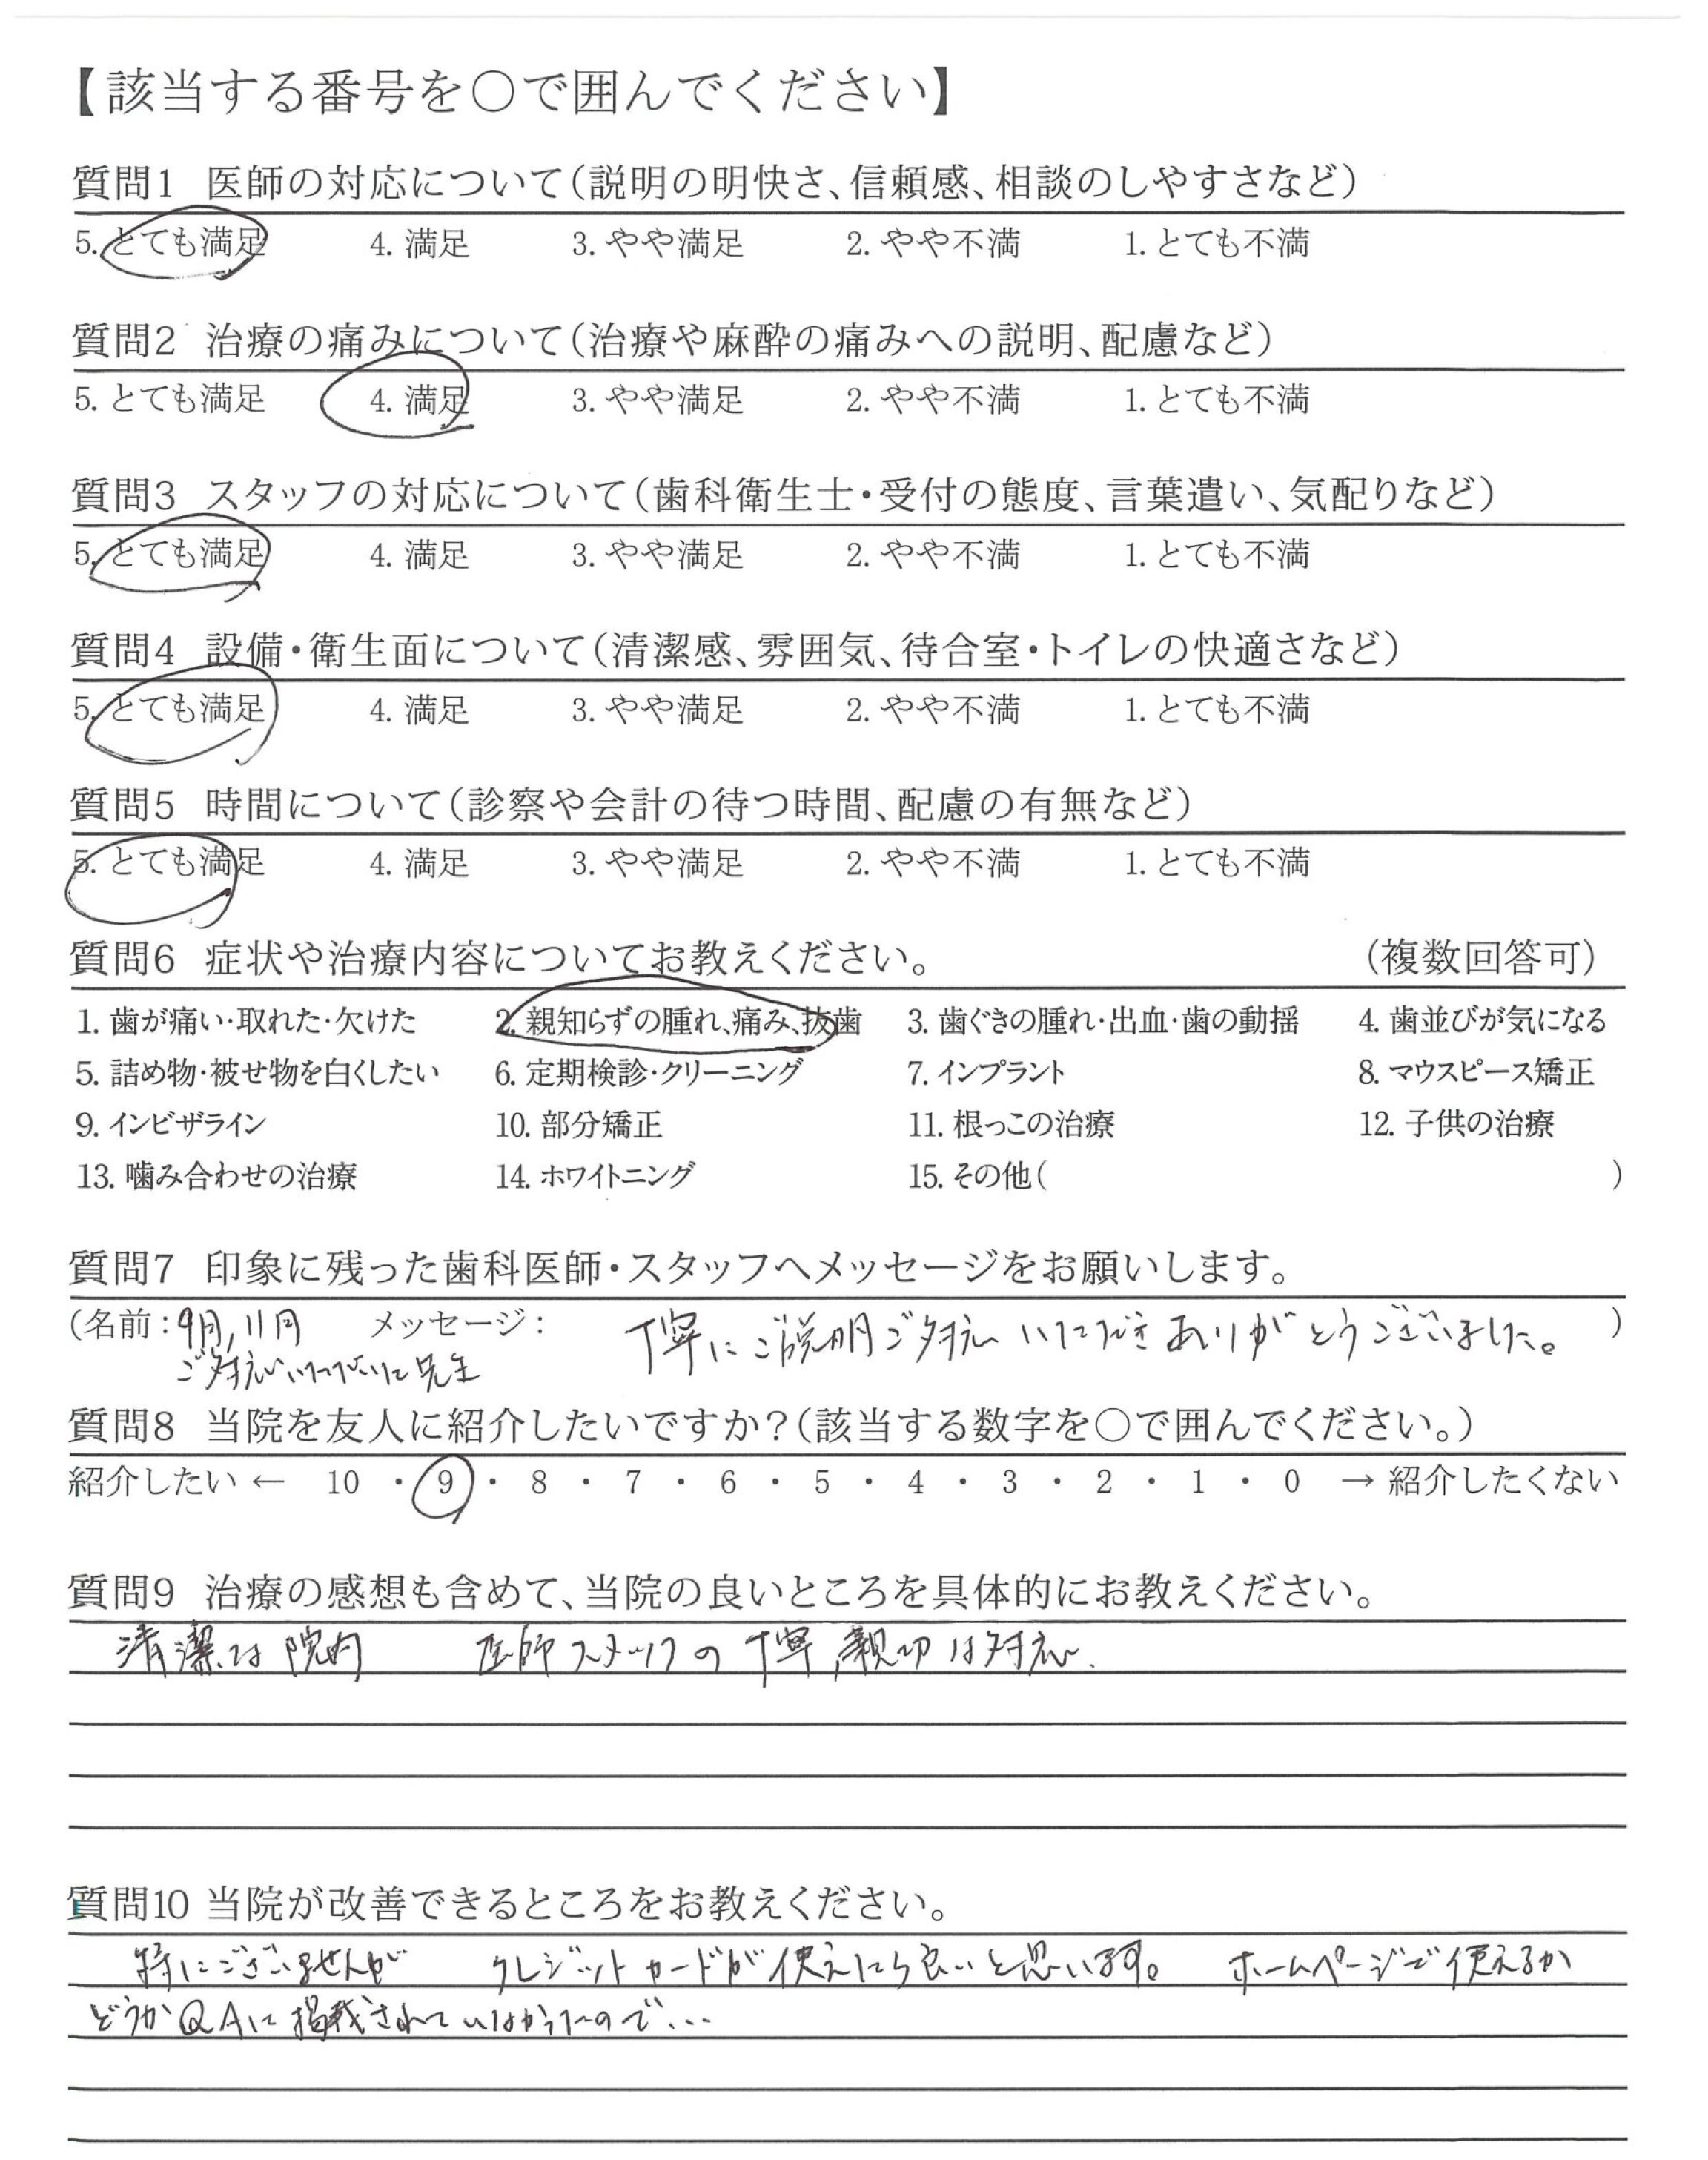 【該当する番号を〇で囲んでください】
質問1 医師の対応について（説明の明快さ、信頼感、相談のしやすさなど）
5. とても満足 4. 満足 3. やや満足 2. やや不満 1. とても不満
質問2 治療の痛みについて（治療や麻酔の痛みへの説明、配慮など）
5. とても満足 4. 満足 3. やや満足 2. やや不満 1. とても不満
質問3 スタッフの対応について（歯科衛生士・受付の態度、言葉遣い、気配りなど）
5. とても満足 4. 満足 3. やや満足 2. やや不満 1. とても不満
質問4 設備・衛生面について（清潔感、雰囲気、待合室・トイレの快適さなど）
5. とても満足 4. 満足 3. やや満足 2. やや不満 1. とても不満
質問5 時間について（診察や会計の待つ時間、配慮の有無など）
5. とても満足 4. 満足 3. やや満足 2. やや不満 1. とても不満
質問6 症状や治療内容についてお教えください。 （複数回答可）
1. 歯が痛い・取れた・欠けた 2. 親知らずの腫れ、痛み、抜歯 3. 歯ぐきの腫れ・出血・歯の動揺 4. 歯並びが気になる
5. 詰め物・被せ物を白くしたい 6. 定期検診・クリーニング 7. インプラント 8. マウスピース矯正
9. インビザライン 10. 部分矯正 11. 根っこの治療 12. 子供の治療
13. 噛み合わせの治療 14. ホワイトニング 15. その他（ ）
質問7 印象に残った歯科医師・スタッフへメッセージをお願いします。
（名前：9月,11月 メッセージ： 丁寧にご説明ご対応いただきありがとうございました。 ）
ご対応いただいた先生
質問8 当院を友人に紹介したいですか？（該当する数字を〇で囲んでください。）
紹介したい ← 10 ・ 9 ・ 8 ・ 7 ・ 6 ・ 5 ・ 4 ・ 3 ・ 2 ・ 1 ・ 0 → 紹介したくない
質問9 治療の感想も含めて、当院の良いところを具体的にお教えください。
清潔な院内 医師スタッフの丁寧,親切な対応.
質問10 当院が改善できるところをお教えください。
特にございませんが クレジットカードが使えたら良いと思います。 ホームページで使えるか
どうかQAに掲載されていなかったので...